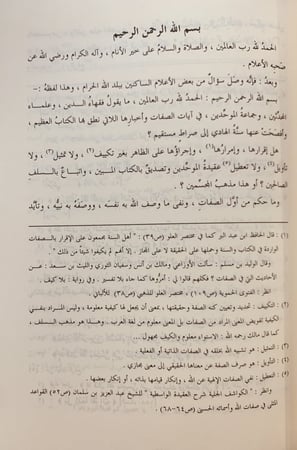 بسم الله الرحمن الرحيم
الحمدُ لله رب العالمين، والصلاة والسلامُ على خير الأنام، وآله الكرام ورضي الله عن
صَحبِهِ الأعلام.
وبعدُ: فإنه وصَلَ سؤالٌ من بعض الأعلام الساكنين ببلد الله الحرام، وهذا لفظُهُ:-
بسم الله الرحمن الرحيم: الحمد لله رب العالمين، ما قولُ فقهاءُ الدين، وعلماء
المحدِّثين، وجماعة الموحِّدين، في آيات الصفات وأخبارها اللاتي نطق بها الكتابُ العظيم،
وأفصَحَتْ عنها سنةُ الهادي إلى صراطٍ مستقيم؟
هل إقرارها، وإمرارُها(١)، وإجراؤها على الظاهر بغير تكييف(٢)، ولا تمثيل(٣)، ولا
تأويل(٤)، ولا تعطيل(٥) عقيدةُ الموحِّدين وتصديقٌ بالكتاب المبين، واتباعٌ بالسلفِ
الصالحين؟ أو هذا مذهبُ المجسِّمين؟
وما حكم من أوَّل الصفات، ونفى ما وصف الله به نفسَه، ووصفَهُ به نبيُّه، وتأيَّد
(١) قال الحافظ ابن عبد البر كما في مختصر العلو (ص٣٩): " أهل السنة مجمعون على الإقرار بالصفات
الواردة في الكتاب والسنة وحملها على الحقيقة لا على المجاز. إلا أنهم لم يكيفوا شيئاً من ذلك".
وقال الوليد بن مسلم: سألت الأوزاعي ومالك بن أنس وسفيان الثوري والليث بن سعد: عــن
الأحاديث التي في الصفات؟ فكلهم قالوا لي: أمرُّوها كما جاء بلا تفسير. وفي رواية: بلا كيف.
انظر: الفتوى الحموية (ص١٠٩)، مختصر العلو للذهبي (ص٣٨) للألباني.
(٢) التكييف: تحديد وتعيين كنه الصفة وحقيقتها، بمعنى أن يجعل لها كيفية معلومة، وليس المراد بنفــي
الكيفية تفويض المعنى المراد من الصفات بل المعنى معلوم من لغة العرب. وهــذا هو مذهب السلف،
كما قال مالك رحمه الله: الاستواء معلوم والكيف مجهول ...
(٣) التمثيل: هو تشبيه الله بخلقه في الصفات الذاتية أو الفعلية.
(٤) التأويل: هو صرف الصفة عن معناها الحقيقي إلى معنى مجازي.
(٥) التعطيل: نفي الصفات الإلهية عن الله، وإنكار قيامها بذاته، أو إنكار بعضها.
وانظر: " الكواشف الجلية شرح العقيدة الواسطية " للشيخ عبد العزيز بن سلمان (ص٥٢) القواعد
المثلى في صفات الله وأسمائه الحسنى (ص٦٤-٦٨).